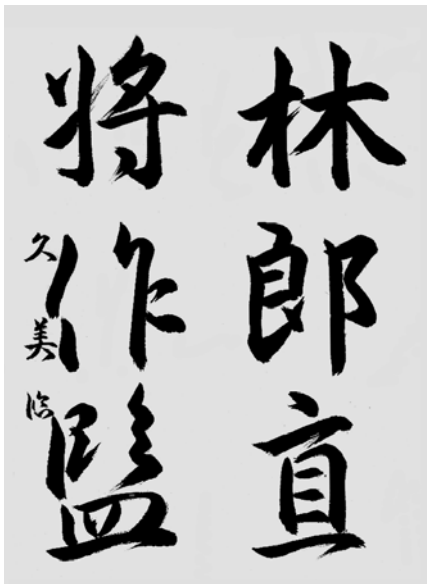 林郎直
将作監
久美臨